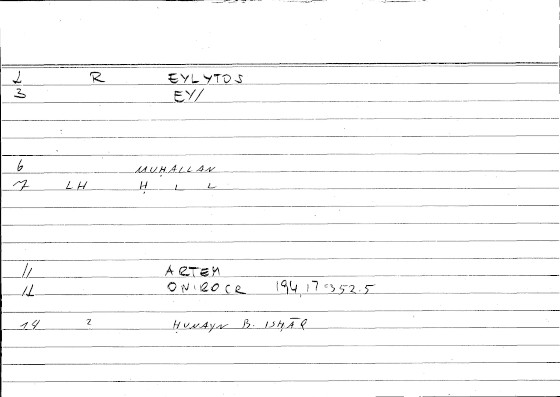 1 R EYLYTOS
3 EY/
6 MUḤALLAN
7 LH Ḥ L L
11 ARTEM
12 ONIROCR 194,17 = 352.5
14 2 ḤUNAYN B. ISḤĀQ